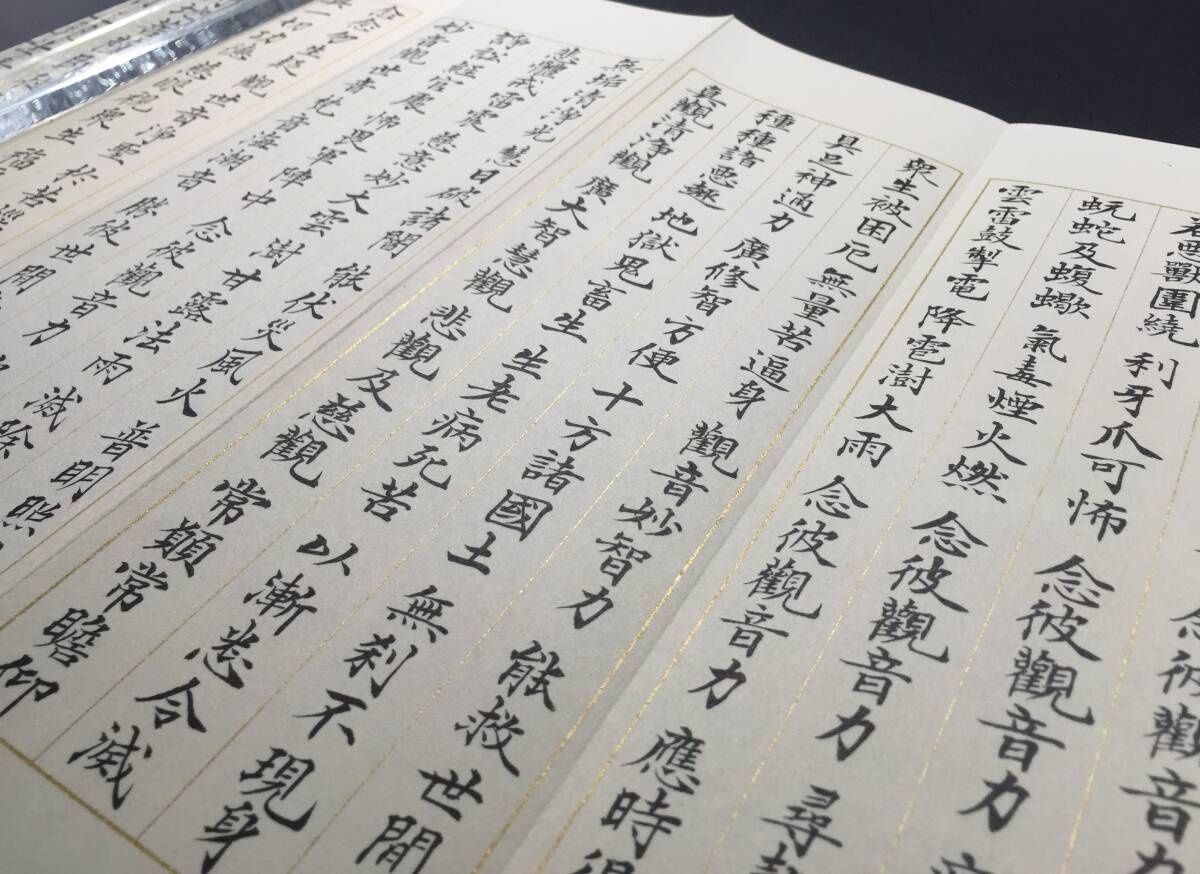 念彼觀音力
若惡獸圍繞 利牙爪可怖 念彼觀音力
蚖蛇及蝮蠍 氣毒煙火燃 念彼觀音力 尋
雲雷鼓掣電 降雹澍大雨 念彼觀音力 應時得
眾生被困厄 無量苦逼身 觀音妙智力 能救世間
具足神通力 廣修智方便 十方諸國土 無刹不現身
種種諸惡趣 地獄鬼畜生 生老病死苦 以漸悉令滅
真觀清淨觀 廣大智慧觀 悲觀及慈觀 常願常瞻仰
無垢清淨光 慧日破諸闇 能伏災風火 普明照
悲體戒雷震 慈意妙大雲 澍甘露法雨 滅除
諍訟經官處 怖畏軍陣中 念彼觀音力
妙音觀世音 梵音海潮音 勝彼世間
念念勿生疑 觀世音淨聖 於苦
具一切功德 慈眼視眾生 福